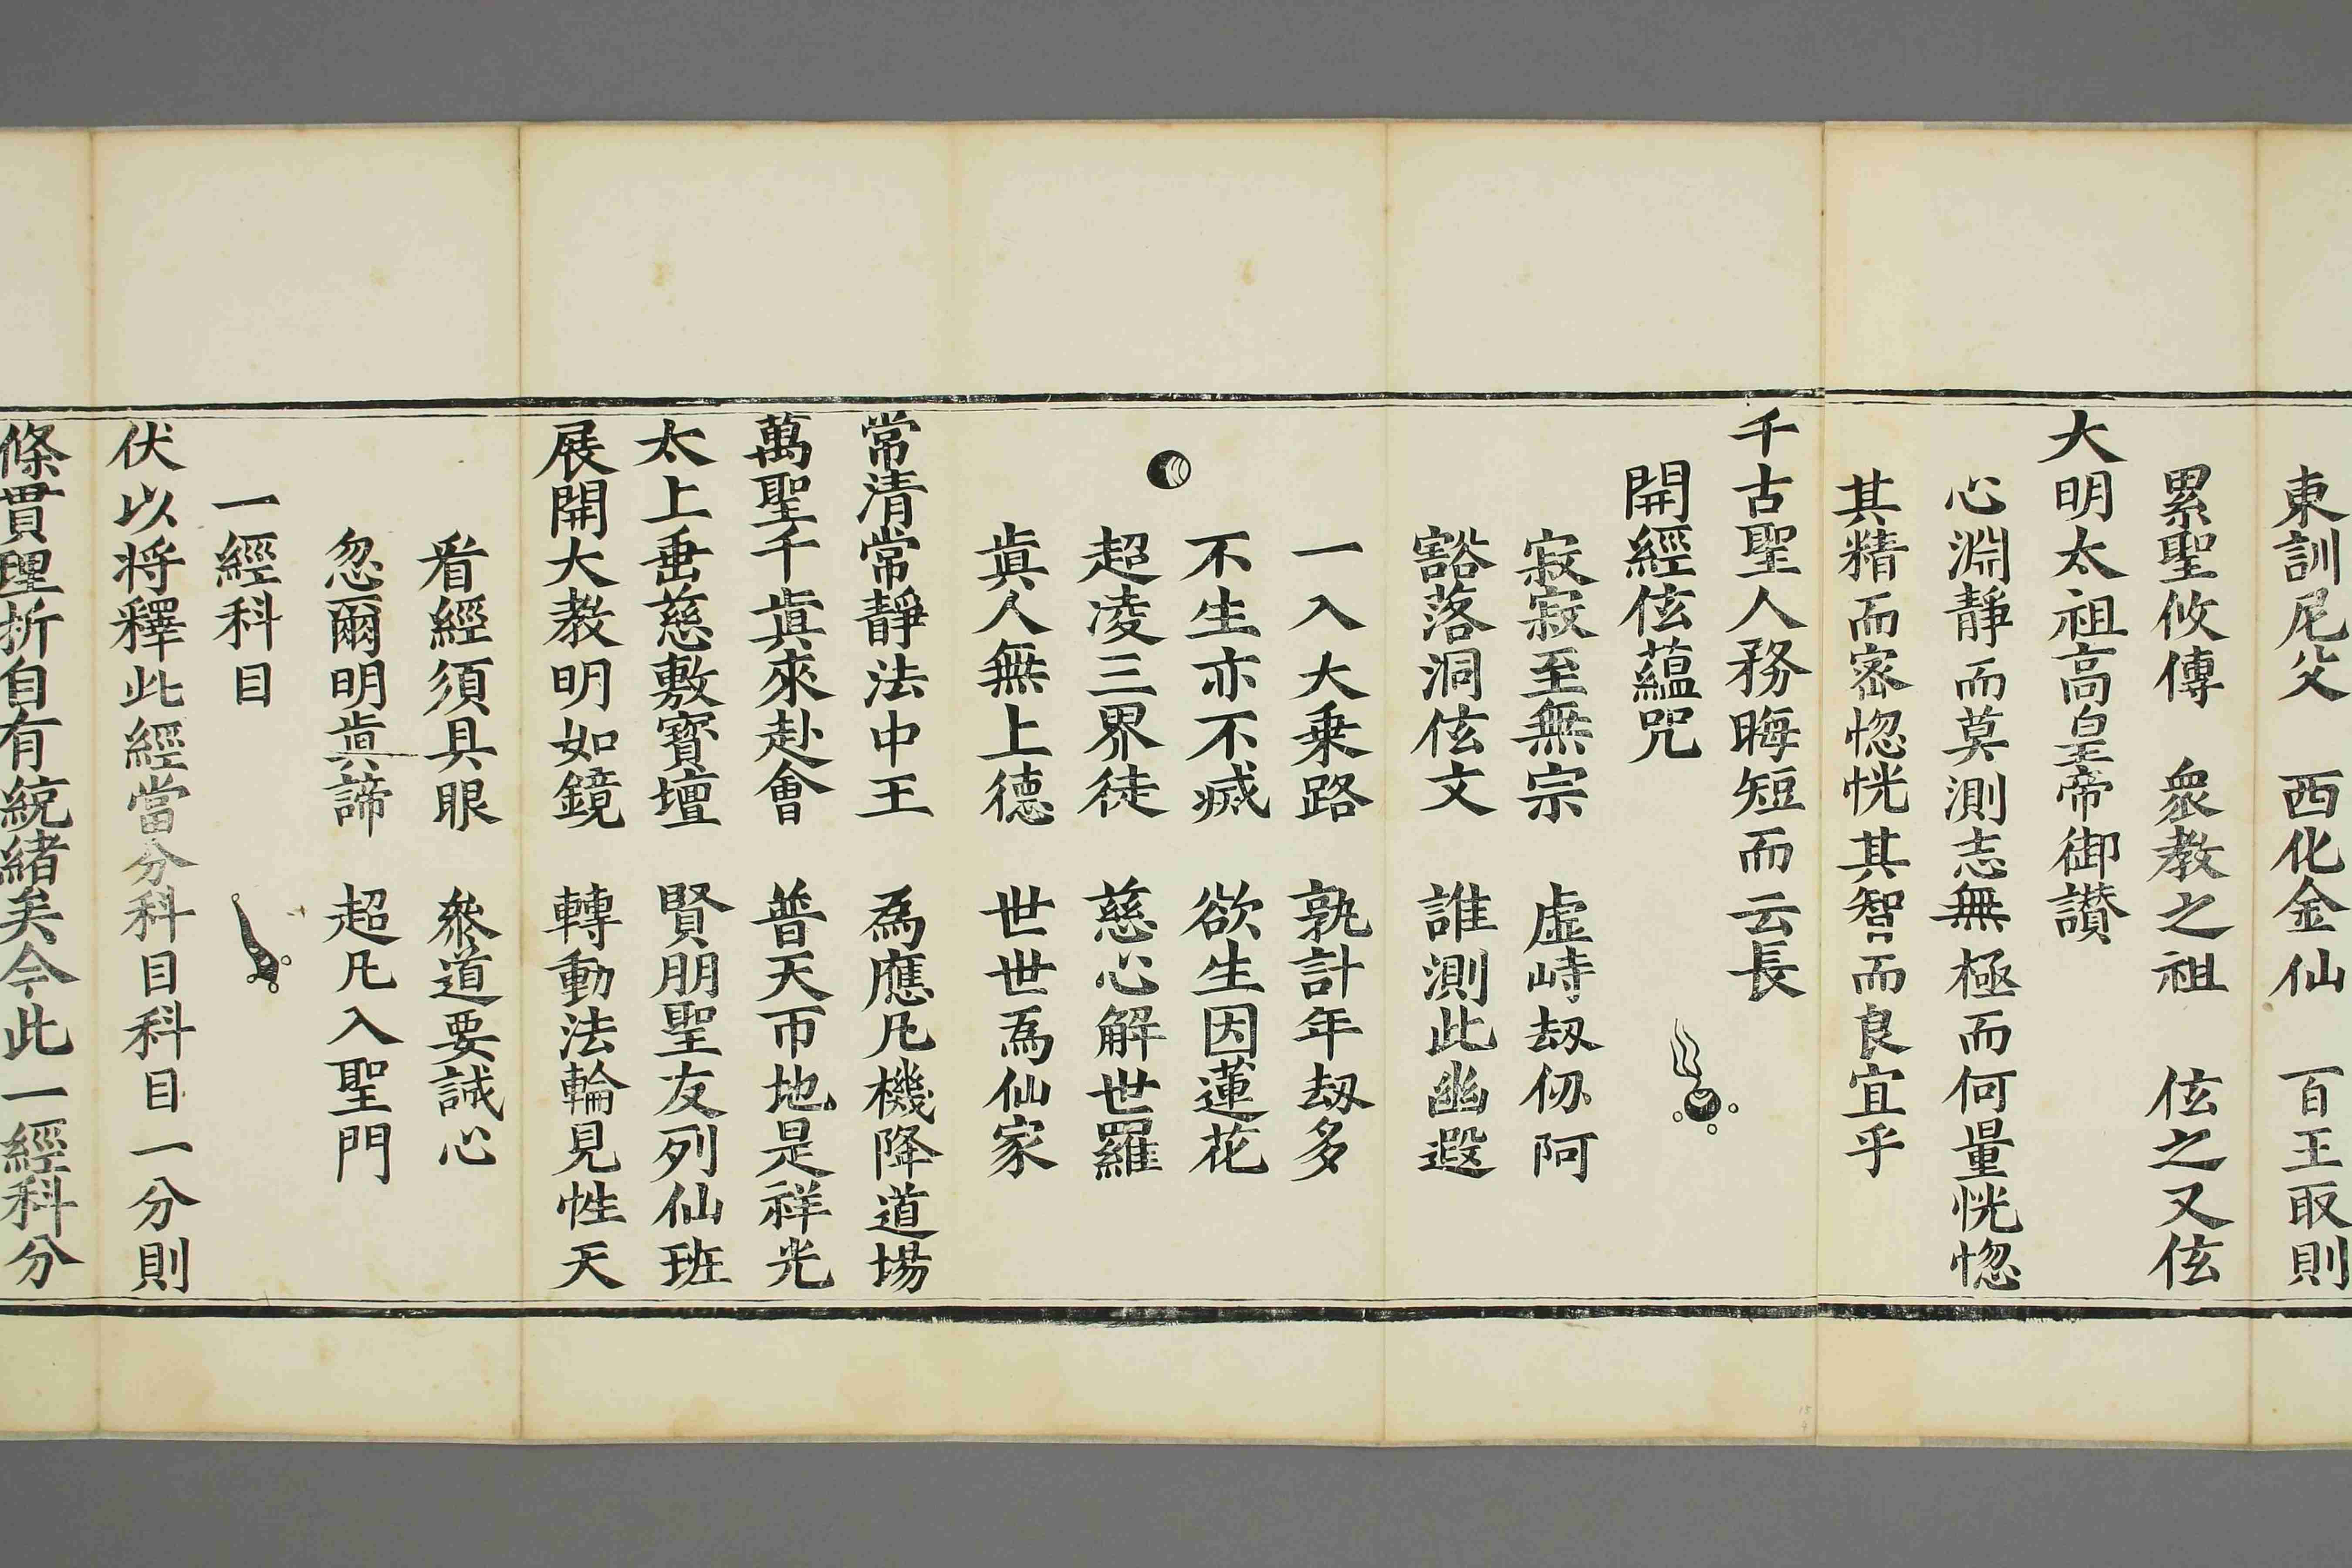 東訓尼父　西化金仙　百王取則
累聖攸傳　衆教之祖　伭之又伭
大明太祖高皇帝御讃
心淵靜而莫測志無極而何量恍惚
其精而密惚恍其智而良宜乎
千古聖人務晦短而云長
開經伭蘊咒
寂寂至無宗　虛峙刼仞阿
豁落洞伭文　誰測此幽遐
一入大乗路　孰計年刼多
不生亦不滅　欲生因蓮花
超凌三界徒　慈心解世羅
眞人無上德　世世爲仙家
常清常靜法中王　爲應凡機降道場
萬聖千眞來赴會　普天帀地是祥光
太上垂慈敷寳壇　賢朋聖友列仙班
展開大教明如鏡　轉動法輪見性天
看經須具眼　叅道要誠心
忽爾明眞諦　超凡入聖門
一經科目
伏以将釋此經當分科目科目一分則
條貫理折自有統緒矣今此一經科分